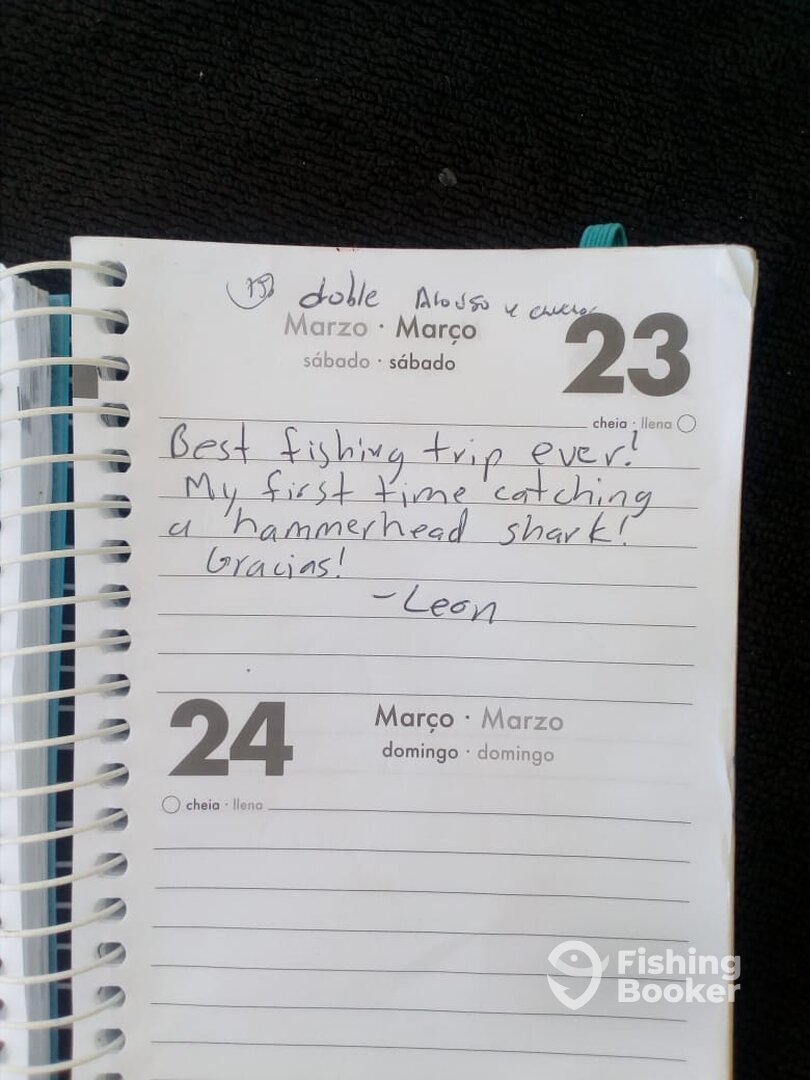 doble Alonso y
Marzo · Março
sábado · sábado
23
cheia · llena
Best fishing trip ever!
My first time catching
a hammerhead shark!
Gracias!
-Leon
24
Março · Marzo
domingo · domingo
cheia · llena
Fishing
Booker